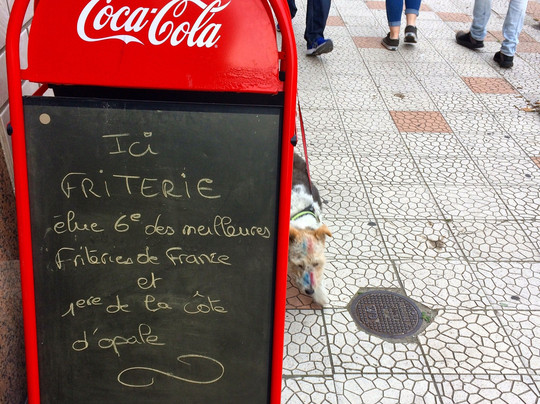 Coca-Cola
Ici
FRiTERiE
élue 6e des meilleures
Friteries de France
et
1ere de la côte
d'opale